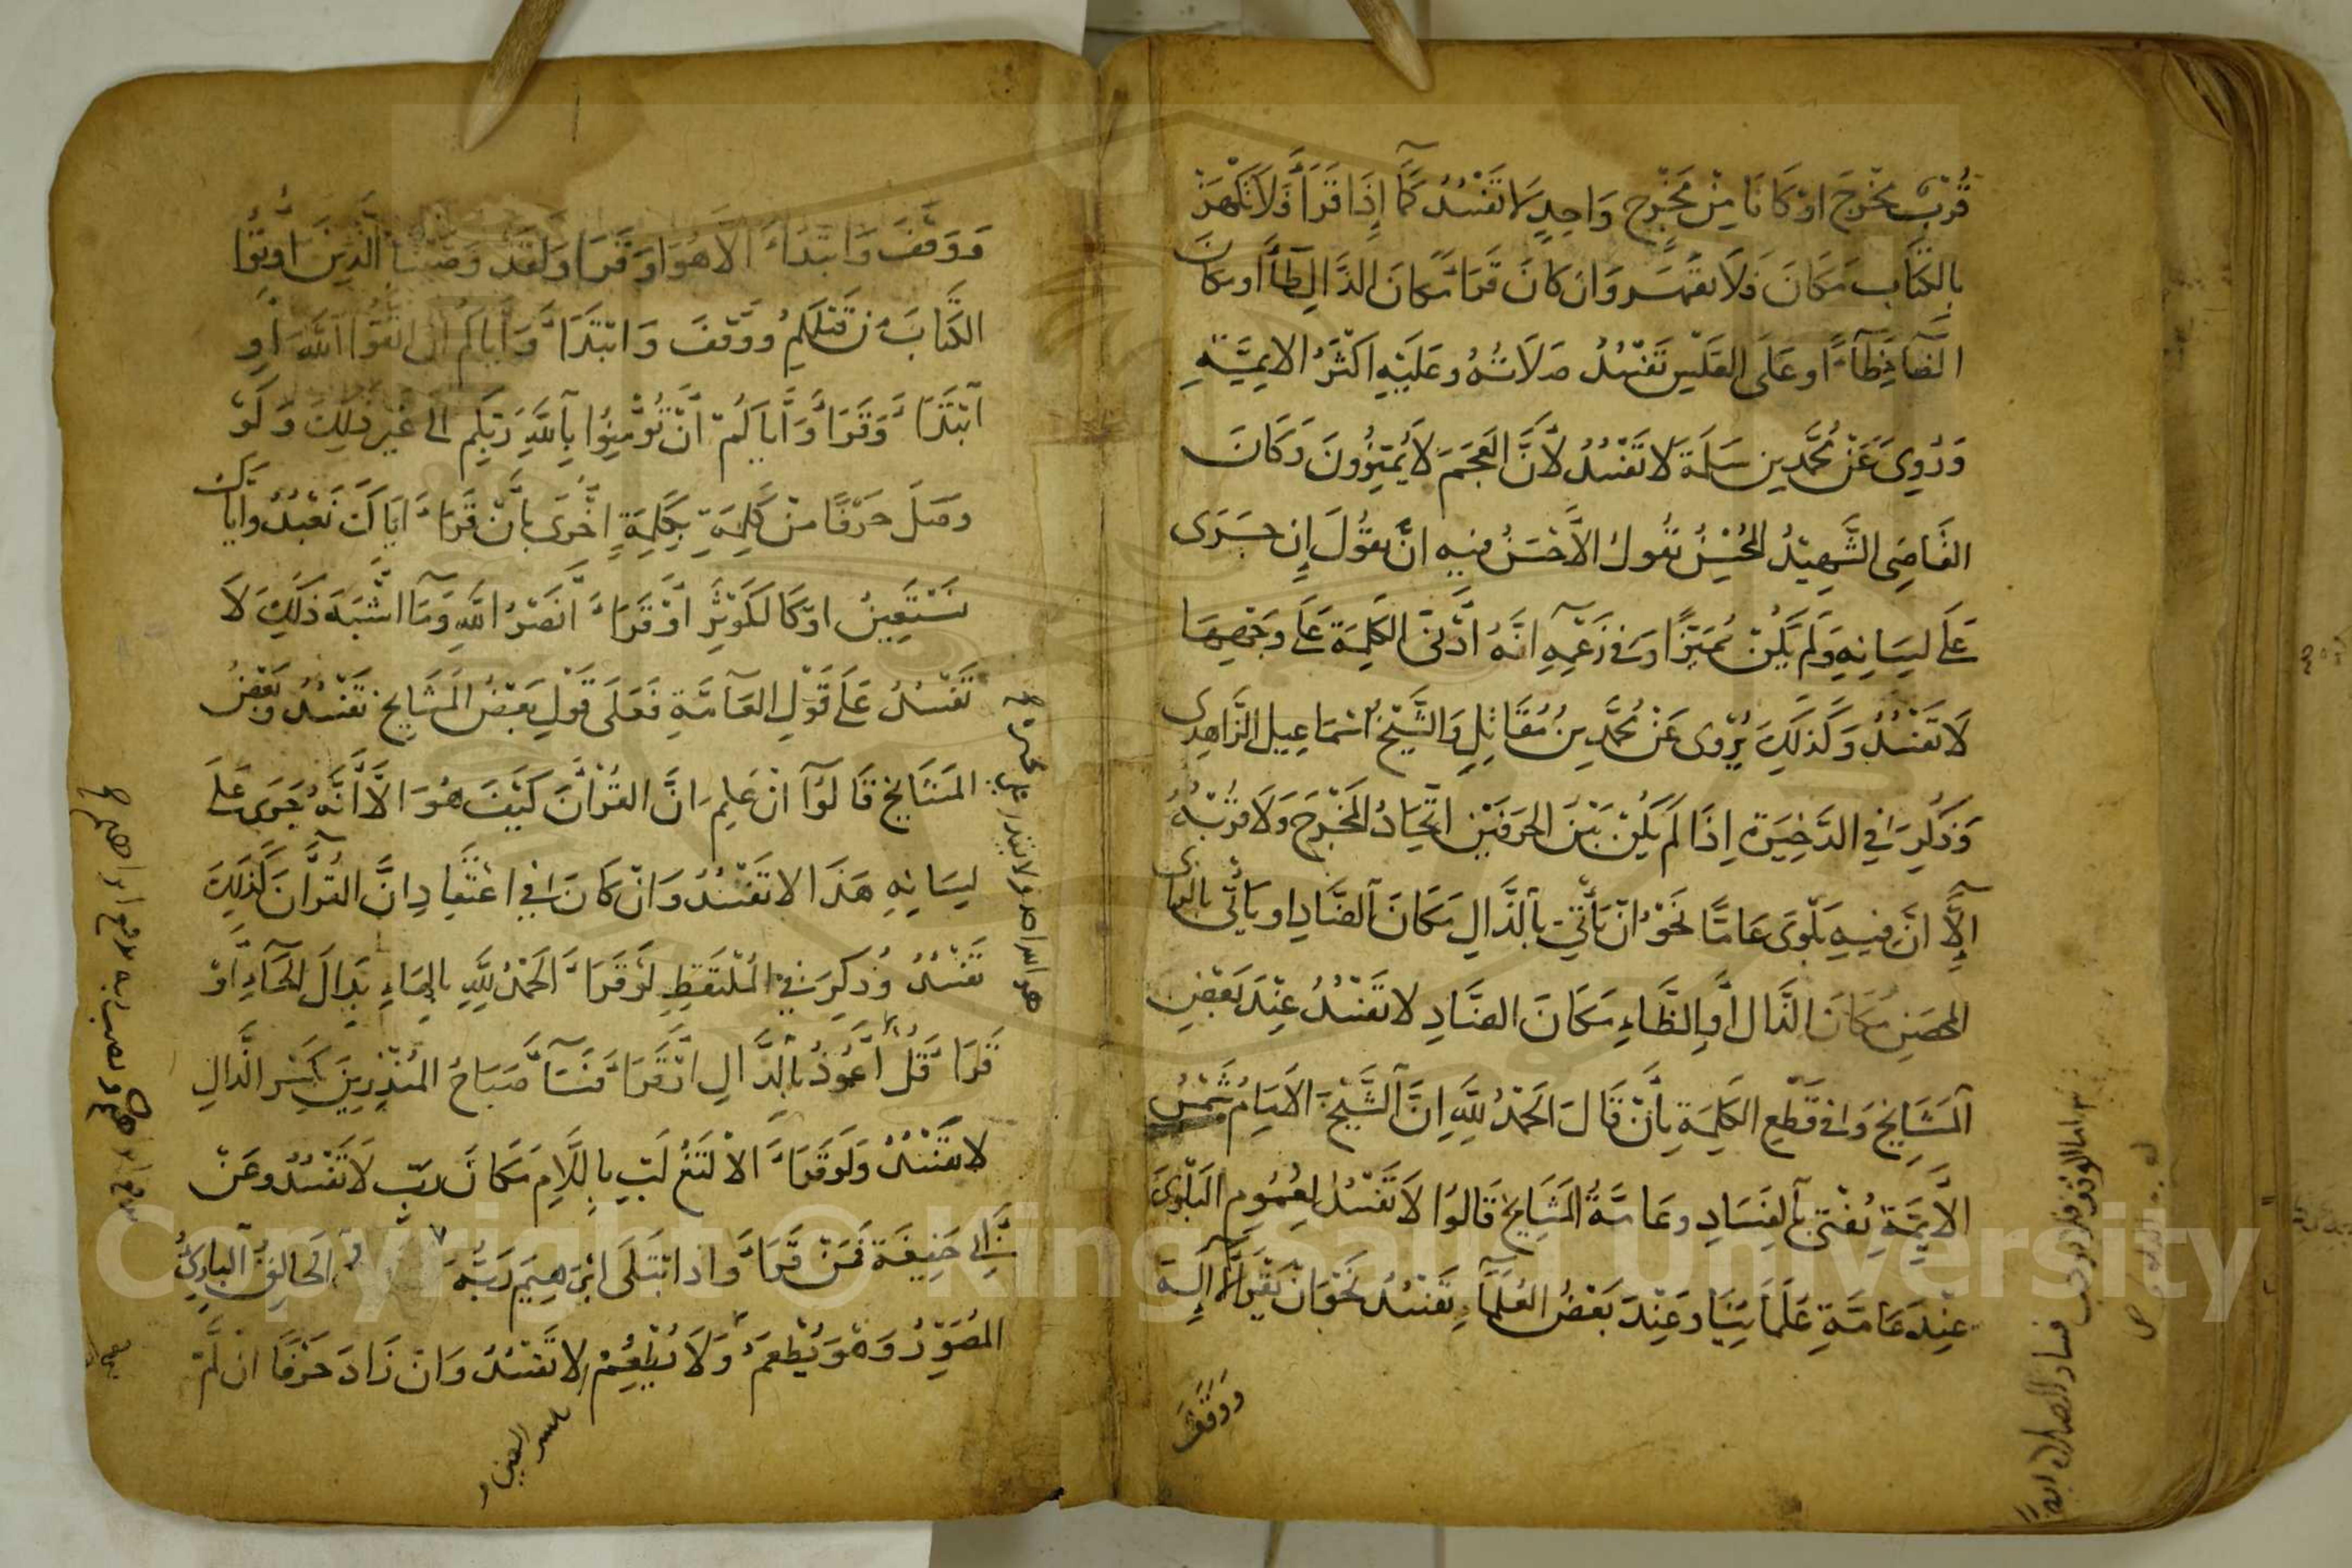 قُرْبُ مَخْرَجٍ اَوْ كَانَا مِنْ مَخْرَجٍ وَاحِدٍ لَا تَفْسُدُ كَمَا إِذَا قَرَأَ فَلَا تَكْهَرْ
بِالكَافِ مَكَانَ فَلَا تَقْهَر وَاِن كَانَ قَرَأَ مَكَانَ الذَّالِ ظَاءً او مَكَانَ
الضَّادِ ظَاءً او عَلَى القَلْبِ تَفْسُدُ صَلَاتُهُ وعَلَيْهِ اَكْثَرُ الائِمَّةِ
وَرُوِيَ عَنْ مُحَمَّدِ بنِ سَلَمَةَ لَا تَفْسُدُ لأَنَّ العَجَمَ لَا يُمَيِّزُونَ وَكَانَ
القَاضِى الشَّهِيْدُ المُحْسِنُ يَقُولُ الأَحْسَنُ فِيهِ اَنْ يَقُولَ إِن جَرَى
عَلَى لِسَانِهِ وَلَمْ يَكُنْ مُمَيِّزًا وَفِى زَعْمِهِ اَنَّهُ اَدَّى الكَلِمَةَ عَلَى وَجْهِهَا
لَا تَفْسُدُ وَكَذَلِكَ يُرْوَى عَنْ مُحَمَّدِ بنِ مُقَاتِلٍ وَالشَّيْخِ اسْمَاعِيلَ الزَّاهِدِى
وَذُكِرَ فِي الذَّخِيرَةِ اِذَا لَمْ يَكُنْ بَيْنَ الحَرفَيْنِ اتِّحَادُ المَخْرَجِ وَلَا قُرْبُهُ
اِلَّا اَنَّ فِيهِ بَلْوَى عَامًّا نَحْوُ اَنْ يَأْتِيَ بِالذَّالِ مَكَانَ الضَّادِ او يَأْتِى بِالزاى
المحضِ مَكَانَ الذَّال اَو الظَّاءِ مَكَانَ الضَّادِ لا تَفْسُدُ عِنْدَ بَعْضِ
المَشَايِخِ وَاَمَّا فِى قَطْعِ الكَلِمَةِ بِأَنْ قَالَ اَلحَمْدُ لِلَّهِ اِنَّ الشَّيْخَ الاِمَامُ شَمْسُ
الأَئِمَّةِ يُفْتِى بِالفَسَادِ وعَامَّةُ المَشَايِخِ قَالُوا لَا تَفْسُدُ لِعُمُومِ البَلْوَى
عِنْدَ عَامَّةِ عُلَمَائِنَا وعِنْدَ بَعْضِ العُلَمَاءِ تَفْسُدُ نَحْوُ اَنْ يَقْرَأَ لَا اِلَهَ
وَوَقَفَ
وَوَقَفَ وَابْتَدَأَ اِلَّا هُوَ اَوْ قَرَأَ وَلَقَدْ وَصَّيْنَا الَّذِينَ اُوتُوا
الكِتَابَ مِنْ قَبْلِكُمْ وَوَقَفَ وَابْتَدَأَ وَاِيَّاكُمْ اَنِ اتَّقُوا اللَّهَ اَو
ابْتَدَأَ وَقَرَأَ وَاِيَّاكُمْ اَنْ تُؤْمِنُوا بِاللَّهِ رَبِّكُمْ اِلَى غَيْرِ ذَلِكَ وَلَوْ
وصَلَ حَرْفًا مِنْ كَلِمَةٍ بِكَلِمَةٍ اُخْرَى بِأَنْ قَرَأَ اِيَّاكَ نَعْبُدُ وَاِيَّاكَ
نَسْتَعِينُ اوْ كَالكَوْثَرِ اَوْ قَرَأَ اِنْصَرُ اللَّهِ وَمَا اَشْبَهَ ذَلِكَ لَا
تَفْسُدُ عَلَى قَوْلِ العَامَّةِ فَعَلَى قَوْلِ بَعْضِ المَشَايِخِ تَفْسُدُ وبَعْضُ
المَشَايِخِ قَالُوا اِنْ عَلِمَ اَنَّ القُرْآنَ كَيْفَ هُوَ اِلَّا اَنَّهُ جَرَى عَلَى
لِسَانِهِ هَذَا لا تَفْسُدُ وَانْ كَانَ فِي اعْتِقَادِهِ اَنَّ القُرْآنَ كَذَلِكَ
تَفْسُدُ وُذُكِرَ فِي المُلْتَقَطِ لَوْ قَرَأَ اَلحَمْدُ لِلَّهِ بِالهَاءِ بَدَلَ الحَاءِ اَوْ
قَرَأَ قُلْ اَعُوذُ بِالدَّالِ اَوْ قَرَأَ فَسَاءَ صَبَاحُ المُنْذِرِينَ بِكَسْرِ الذَّالِ
لا تَفْسُدُ وَلَو قَرَأَ الْتَغ لَبّ بِاللَّامِ مَكَانَ رَبِّ لَا تَفْسُدُ وعَنْ
اَبِى حَنِيفَةَ فَمَنْ قَرَأَ وَاِذِ ابْتَلَى اِبْرَهِيمَ رَبُّهُ الخَالِقُ البَارِئُ
المُصَوِّرُ وَهُوَ يُطْعِمُ وَلَا يُطْعَمُ لا تَفْسُدُ وَاِنْ زَادَ حَرْفًا اِنْ لَمْ